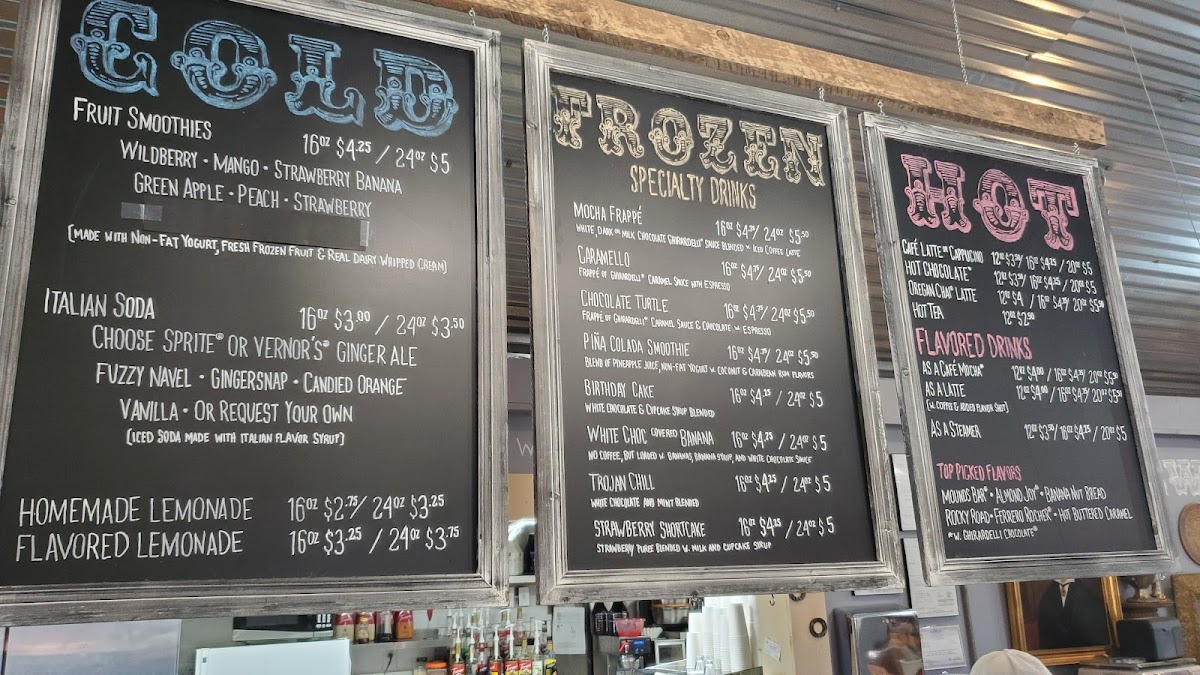 COLD
FRUIT SMOOTHIES
16OZ $4.25 / 24OZ $5
WILDBERRY • MANGO • STRAWBERRY BANANA
GREEN APPLE • PEACH • STRAWBERRY
(MADE WITH NON-FAT YOGURT, FRESH FROZEN FRUIT & REAL DAIRY WHIPPED CREAM)
ITALIAN SODA 16OZ $3.00 / 24OZ $3.50
CHOOSE SPRITE® OR VERNOR'S® GINGER ALE
FUZZY NAVEL • GINGERSNAP • CANDIED ORANGE
VANILLA • OR REQUEST YOUR OWN
(ICED SODA MADE WITH ITALIAN FLAVOR SYRUP)
HOMEMADE LEMONADE 16OZ $2.75 / 24OZ $3.25
FLAVORED LEMONADE 16OZ $3.25 / 24OZ $3.75
FROZEN
SPECIALTY DRINKS
MOCHA FRAPPÉ 16OZ $4.75 / 24OZ $5.50
WHITE, DARK OR MILK CHOCOLATE GHIRARDELLI® SAUCE BLENDED W. ICED COFFEE LATTE
CARAMELLO 16OZ $4.75 / 24OZ $5.50
FRAPPÉ OF GHIRARDELLI® CARAMEL SAUCE WITH ESPRESSO
CHOCOLATE TURTLE 16OZ $4.75 / 24OZ $5.50
FRAPPÉ OF GHIRARDELLI® CARAMEL SAUCE & CHOCOLATE W. ESPRESSO
PIÑA COLADA SMOOTHIE 16OZ $4.75 / 24OZ $5.50
BLEND OF PINEAPPLE JUICE, NON-FAT YOGURT W. COCONUT & CARIBBEAN RUM FLAVORS
BIRTHDAY CAKE 16OZ $4.25 / 24OZ $5
WHITE CHOCOLATE & CUPCAKE SYRUP BLENDED
WHITE CHOC COVERED BANANA 16OZ $4.25 / 24OZ $5
NO COFFEE, BUT LOADED W. BANANAS, BANANA SYRUP, AND WHITE CHOCOLATE SAUCE
TROJAN CHILL 16OZ $4.25 / 24OZ $5
WHITE CHOCOLATE AND MINT BLENDED
STRAWBERRY SHORTCAKE 16OZ $4.25 / 24OZ $5
STRAWBERRY PUREE BLENDED W. MILK AND CUPCAKE SYRUP
HOT
CAFÉ LATTE OR CAPPUCINO 12OZ $3.50/ 16OZ $4.25 / 20OZ $5
HOT CHOCOLATE* 12OZ $3.50/ 16OZ $4.25 / 20OZ $5
OREGAN CHAI® LATTE 12OZ $4 / 16OZ $4.75/ 20OZ $5.50
HOT TEA 12OZ $2.50
FLAVORED DRINKS
AS A CAFÉ MOCHA* 12OZ $4.00 / 16OZ $4.75/ 20OZ $5.50
AS A LATTE 12OZ $4.00 / 16OZ $4.75/ 20OZ $5.50
(W. COFFEE & ADDED FLAVOR SHOT)
AS A STEAMER 12OZ $3.50/ 16OZ $4.25 / 20OZ $5
TOP PICKED FLAVORS
MOUNDS BAR® • ALMOND JOY® • BANANA NUT BREAD
ROCKY ROAD • FERRERO ROCHER® • HOT BUTTERED CARAMEL
*W. GHIRARDELLY CHOCOLATE*